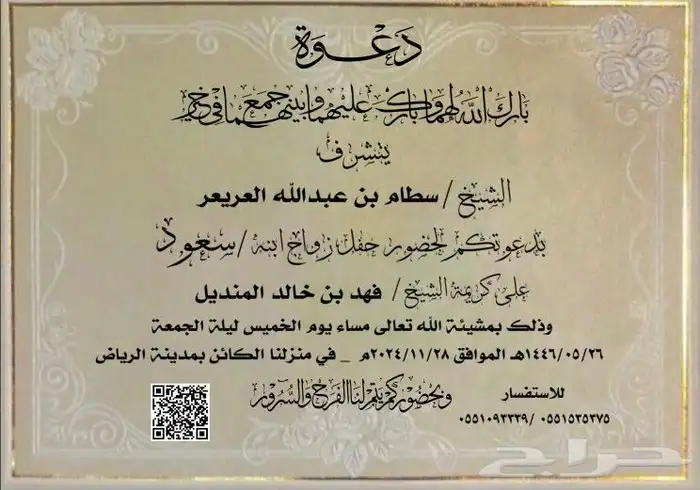 دعوة
بارك الله لهما وبارك عليهما وجمع بينهما في خير
يتشرف
الشيخ / سطام بن عبدالله العريعر
بدعوتكم لحضور حفل زواج ابنه / سعود
على كريمة الشيخ / فهد بن خالد المنديل
وذلك بمشيئة الله تعالى مساء يوم الخميس ليلة الجمعة
١٤٤٦/٠٥/٢٦هـ الموافق ٢٠٢٤/١١/٢٨م _ في منزلنا الكائن بمدينة الرياض
وبحضوركم يتم لنا الفرح والسرور
للاستفسار
٠٥٥١٥٣٥٣٧٥ / ٠٥٥١٠٩٣٣٣٩
حراج